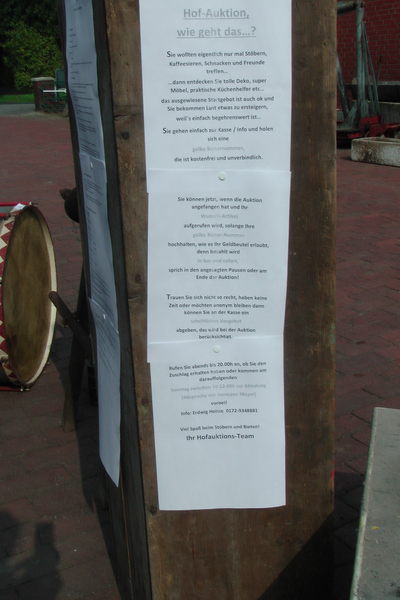 Hof-Auktion,
wie geht das...?
Sie wollten eigentlich nur mal Stöbern,
Kaffeesieren, Schnacken und Freunde
treffen...
...dann entdecken Sie tolle Deko, super
Möbel, praktische Küchenhelfer etc...
das ausgewiesene Startgebot ist auch ok und
Sie bekommen Lust etwas zu ersteigern,
weil's einfach begehrenswert ist...
Sie gehen einfach zur Kasse / Info und holen
sich eine
gelbe Bieternummer,
die ist kostenfrei und unverbindlich.
Sie können jetzt, wenn die Auktion
angefangen hat und Ihr
Wunsch-Artikel
aufgerufen wird, solange Ihre
gelbe Bieter-Nummer
hochhalten, wie es Ihr Geldbeutel erlaubt,
denn bezahlt wird
in bar und sofort,
sprich in den angesagten Pausen oder am
Ende der Auktion!
Trauen Sie sich nicht so recht, haben keine
Zeit oder möchten anonym bleiben dann
können Sie an der Kasse ein
schriftliches Vorgebot
abgeben, das wird bei der Auktion
berücksichtigt.
Rufen Sie abends bis 20.00h an, ob Sie den
Zuschlag erhalten haben oder kommen am
darauffolgenden
vorbei!
Info: Erdwig Holste 0172-9348883
Viel Spaß beim Stöbern und Bieten!
Ihr Hofauktions-Team